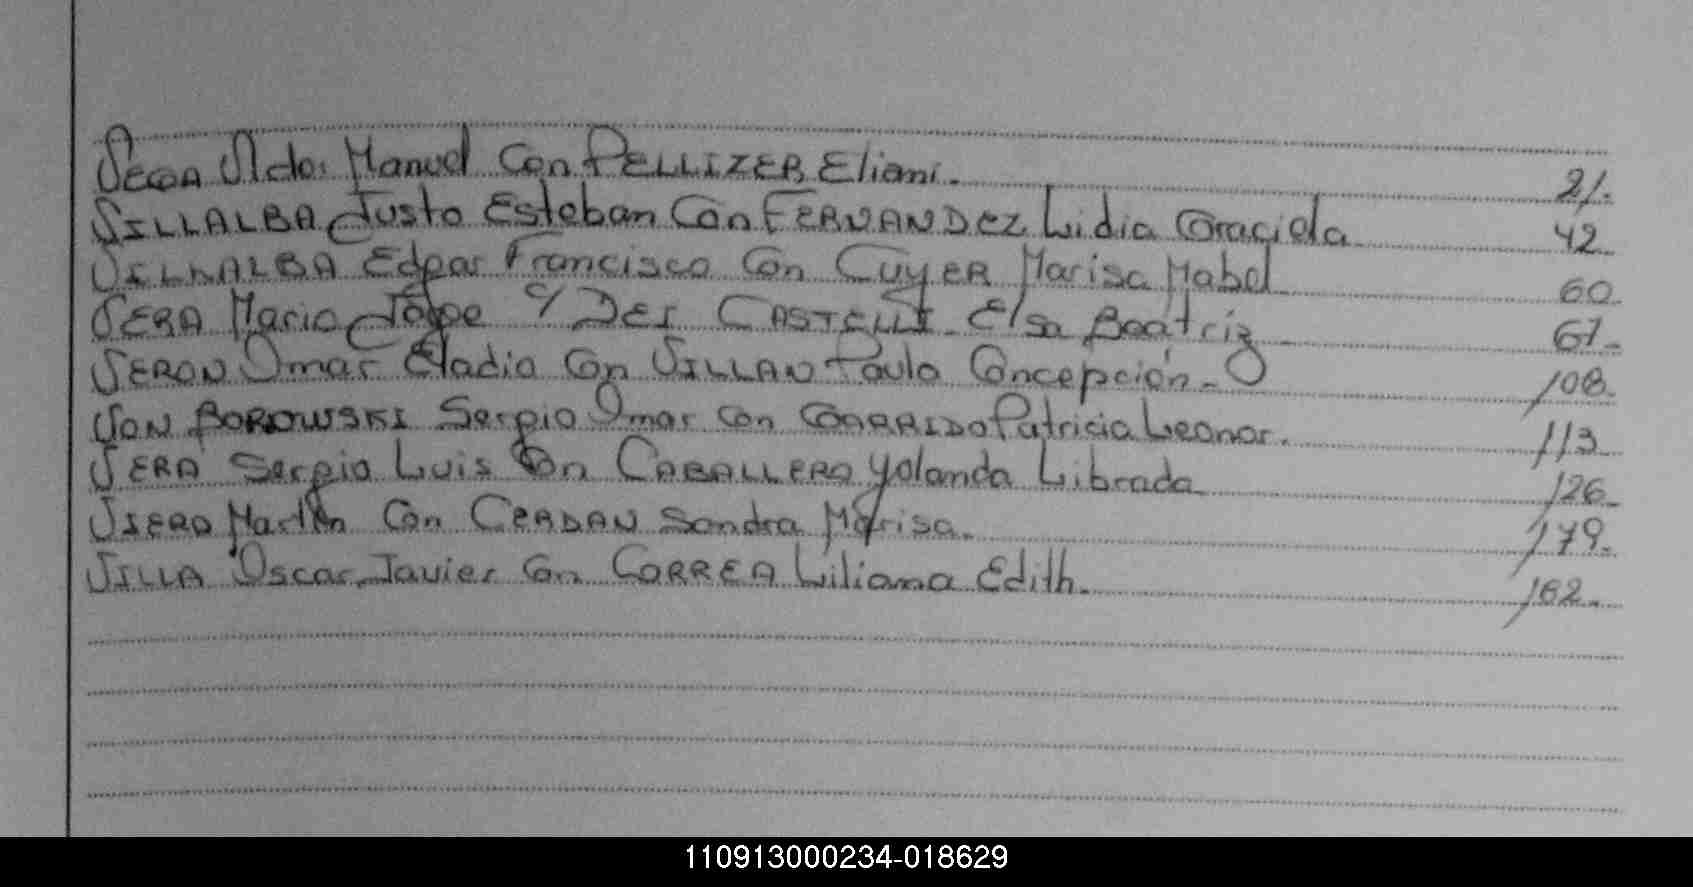 VEGA Victor Manuel Con PELLIZER Eliani. 21.
VILLALBA Justo Esteban Con FERNANDEZ Lidia Graciela 42
VILLALBA Edgar Francisco Con CUYER Marisa Mabel 60.
VERA Mario Jorge c/ DEI CASTELLI Elsa Beatriz 67.
VERON Omar Eladio Con VILLAN Paula Concepción. 108.
VON BOROWSKI Sergio Omar Con GARRIDO Patricia Leonor. 113
VERA Sergio Luis Con CABALLERO Yolanda Librada 126.
VIERO Martín Con CERDAN Sandra Marisa. 179.
VILLA Oscar Javier Con CORREA Liliana Edith. 162.
110913000234-018629